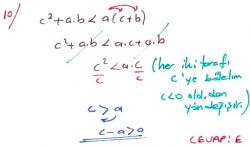 10/ c² + a.b < a(c+b)
c² + a.b < a.c + a.b
c²/c < a.c/c (her iki tarafı
c'ye bölelim
c<0 old.dan
yön değişir.)
c > a
c-a>0
CEVAP: E